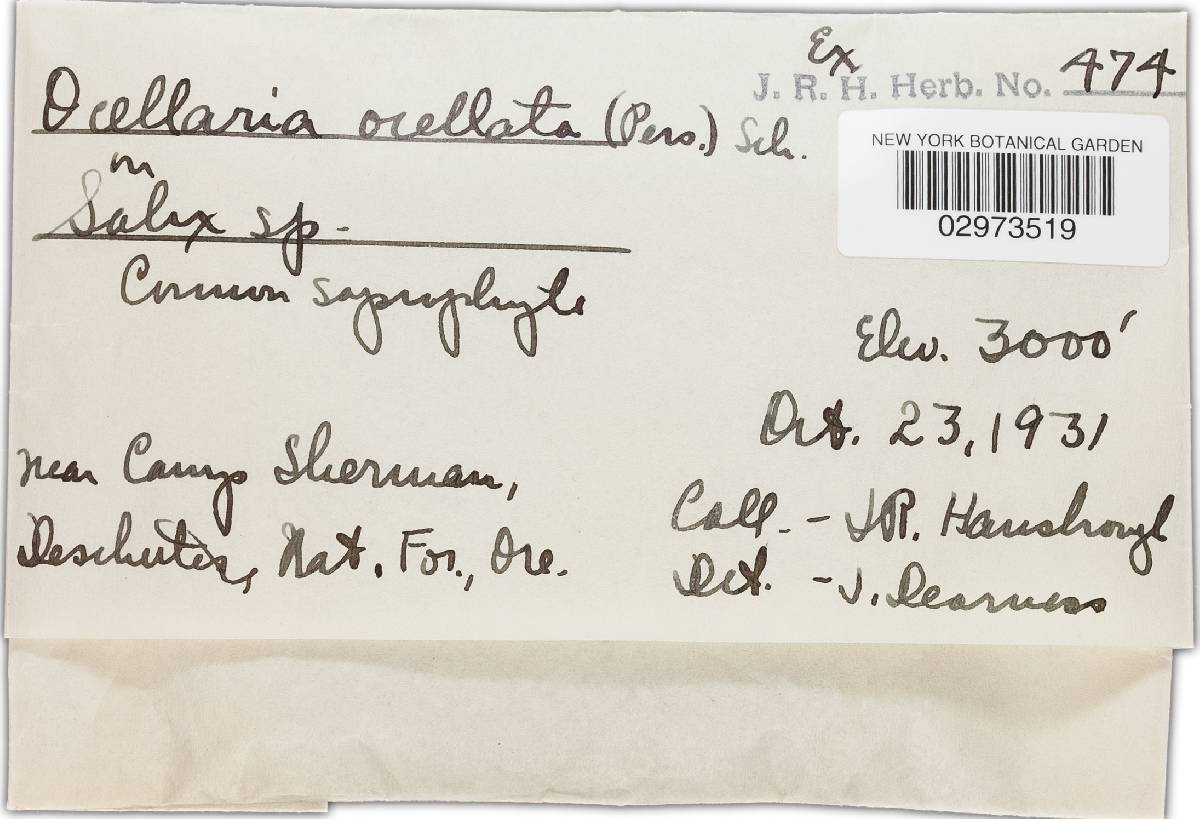 Ex
J. R. H. Herb. No. 474
Ocellaria ocellata (Pers.) Sch.
on
Salix sp.
Common saprophyte
NEW YORK BOTANICAL GARDEN
02973519
Elev. 3000'
Oct. 23, 1931
near Camp Sherman,
Deschutes, Nat. For., Ore.
Coll. - J.R. Hansbrough
Det. - J. Dearness